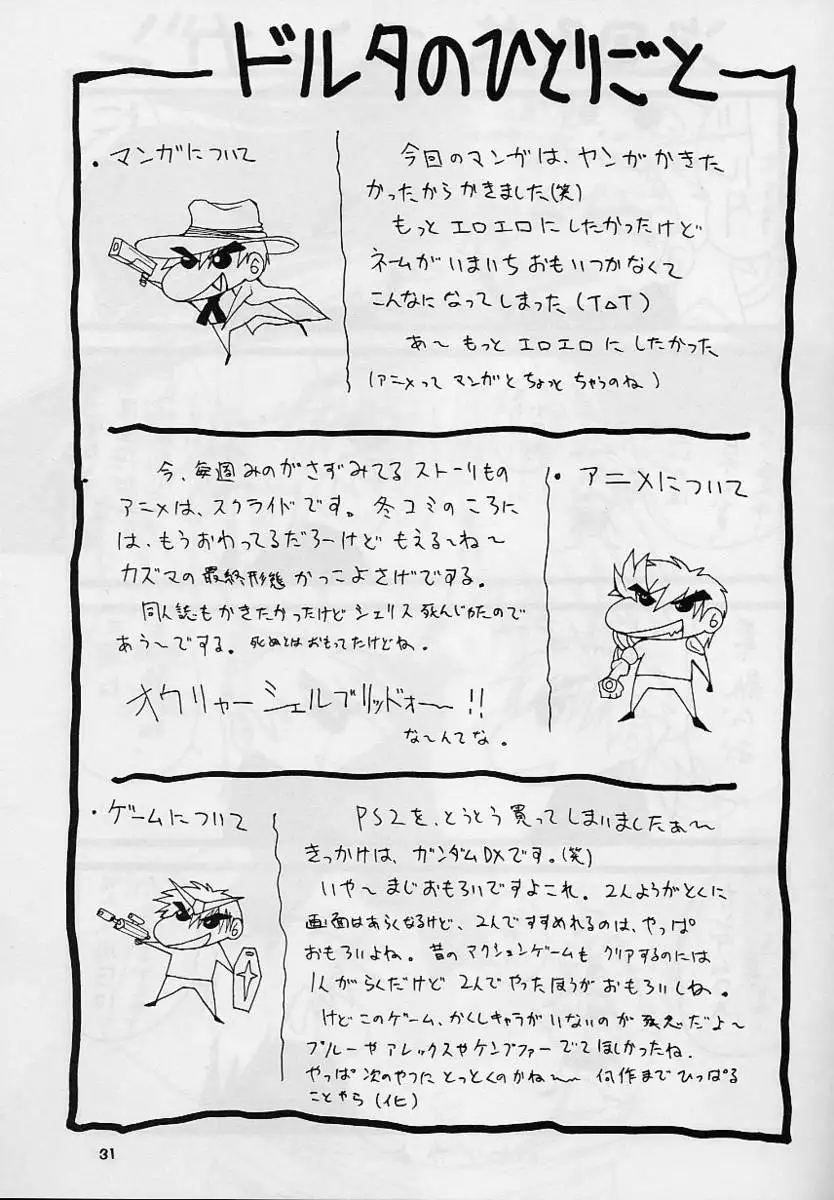 ドルタのひとりごと
・マンガについて
今回のマンガは、ヤンがかきた
かったからかきました(笑)
もっとエロエロにしたかったけど
ネームがいまいちおもいつかなくて
こんなになってしまった(T△T)
あ〜もっとエロエロにしたかった
(アニメってマンガとちょっとちゃうのね)
・アニメについて
今、毎週みのがさずみてるストーリもの
アニメは、スクライドです。冬コミのころに
は、もうおわってるだろーけどもえる〜ね〜
カズマの最終形態かっこよさげでする。
同人誌もかきたかったけどシェリス死んじがたので
あう〜でする。死ぬとはおもってたけどね。
オウリャーシェルブリッドォー〜!!
な〜んてな。
・ゲームについて
PS2を、とうとう買ってしまいましたぁ〜
きっかけは、ガンダムDXです。(笑)
いや〜まじおもろいですよこれ。2人ようがとくに
画面はあらくなるけど、2人ですすめれるのは、やっぱ
おもろいよね。昔のアクションゲームもクリアするのには
1人がらくだけど2人でやったほうがおもろいしね。
けどこのゲーム、かくしキャラがいないのが残念だよ〜
ブルーやアレックスやケンプファーでてほしかったね。
やっぱ次のやつにとっとくのかね〜〜何作までひっぱる
ことやら
31